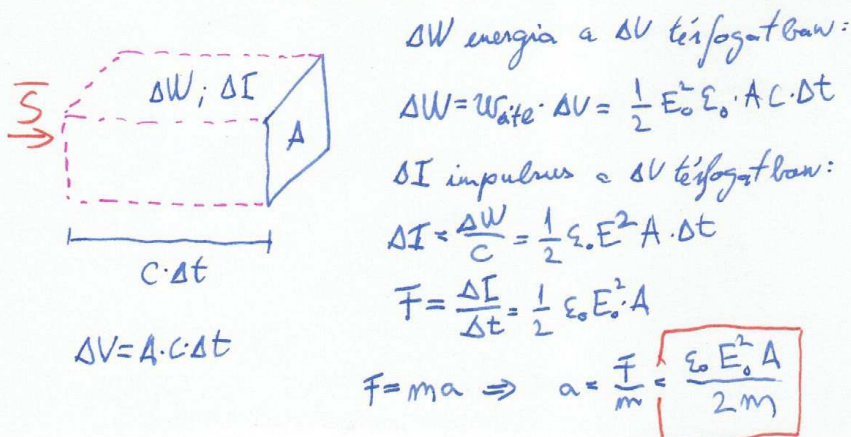 S̅
ΔW; ΔI
A
C·Δt
ΔV=A·C·Δt
ΔW energia a ΔV térfogatban:
ΔW = w_átl · ΔV = 1/2 E₀² ε₀ · A C · Δt
ΔI impulzus a ΔV térfogatban:
ΔI = ΔW/C = 1/2 ε₀ E² A · Δt
F = ΔI/Δt = 1/2 ε₀ E₀² · A
F = ma ⇒ a = F/m = ε₀ E₀² A / 2m